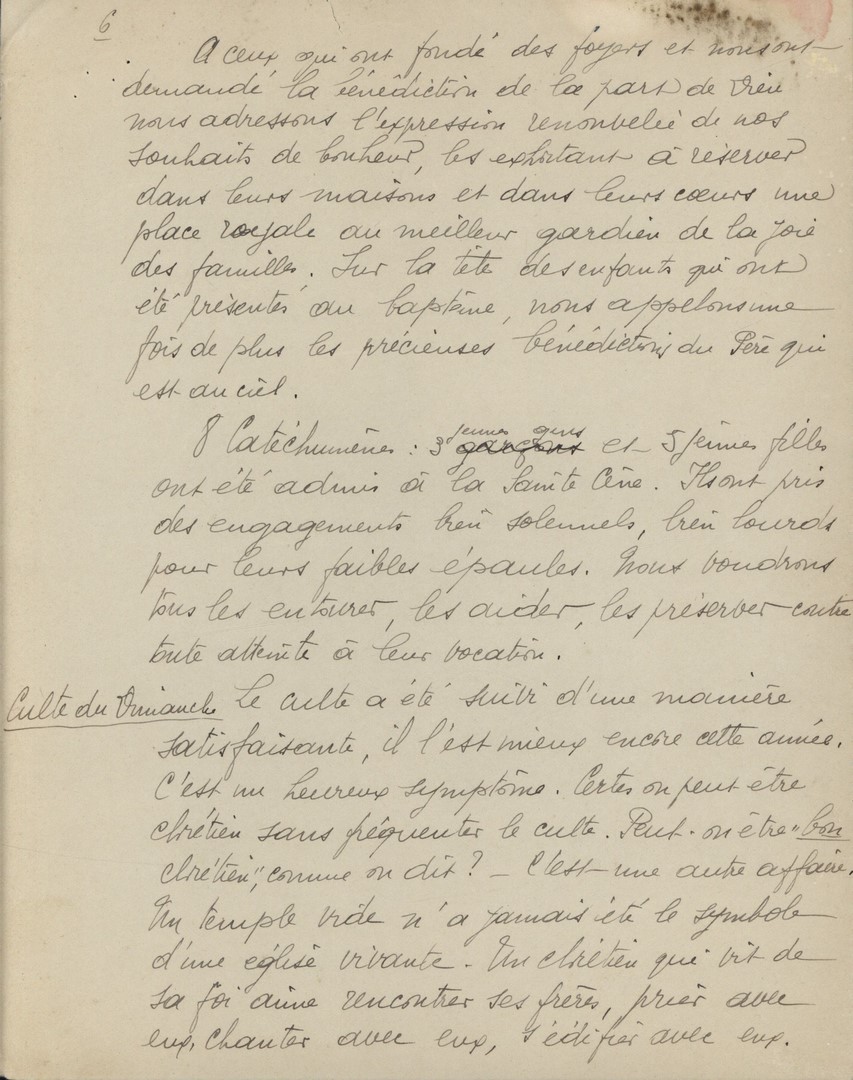 6
A ceux qui ont fondé des foyers et nous ont
demandé la bénédiction de la part de Dieu
nous adressons l'expression renouvelée de nos
souhaits de bonheur, les exhortant à réserver
dans leurs maisons et dans leurs cœurs une
place royale au meilleur gardien de la joie
des familles. Sur la tête des enfants qui ont
été présentés au baptême, nous appelons une
fois de plus les précieuses bénédictions du Père qui
est au ciel.
8 Catéchumènes : 3 garçons jeunes gens et 5 jeunes filles
ont été admis à la Sainte Cène. Ils ont pris
des engagements bien solennels, bien lourds
pour leurs faibles épaules. Nous voudrons
tous les entourer, les aider, les préserver contre
toute atteinte à leur vocation.
Culte du Dimanche Le culte a été suivi d'une manière
satisfaisante, il l'est mieux encore cette année.
C'est un heureux symptôme. Certes on peut être
chrétien sans fréquenter le culte. Peut-on être "bon
chrétien", comme on dit ? - C'est une autre affaire.
Un temple vide n'a jamais été le symbole
d'une église vivante. Un chrétien qui vit de
sa foi aime rencontrer ses frères, prier avec
eux, chanter avec eux, s'édifier avec eux.